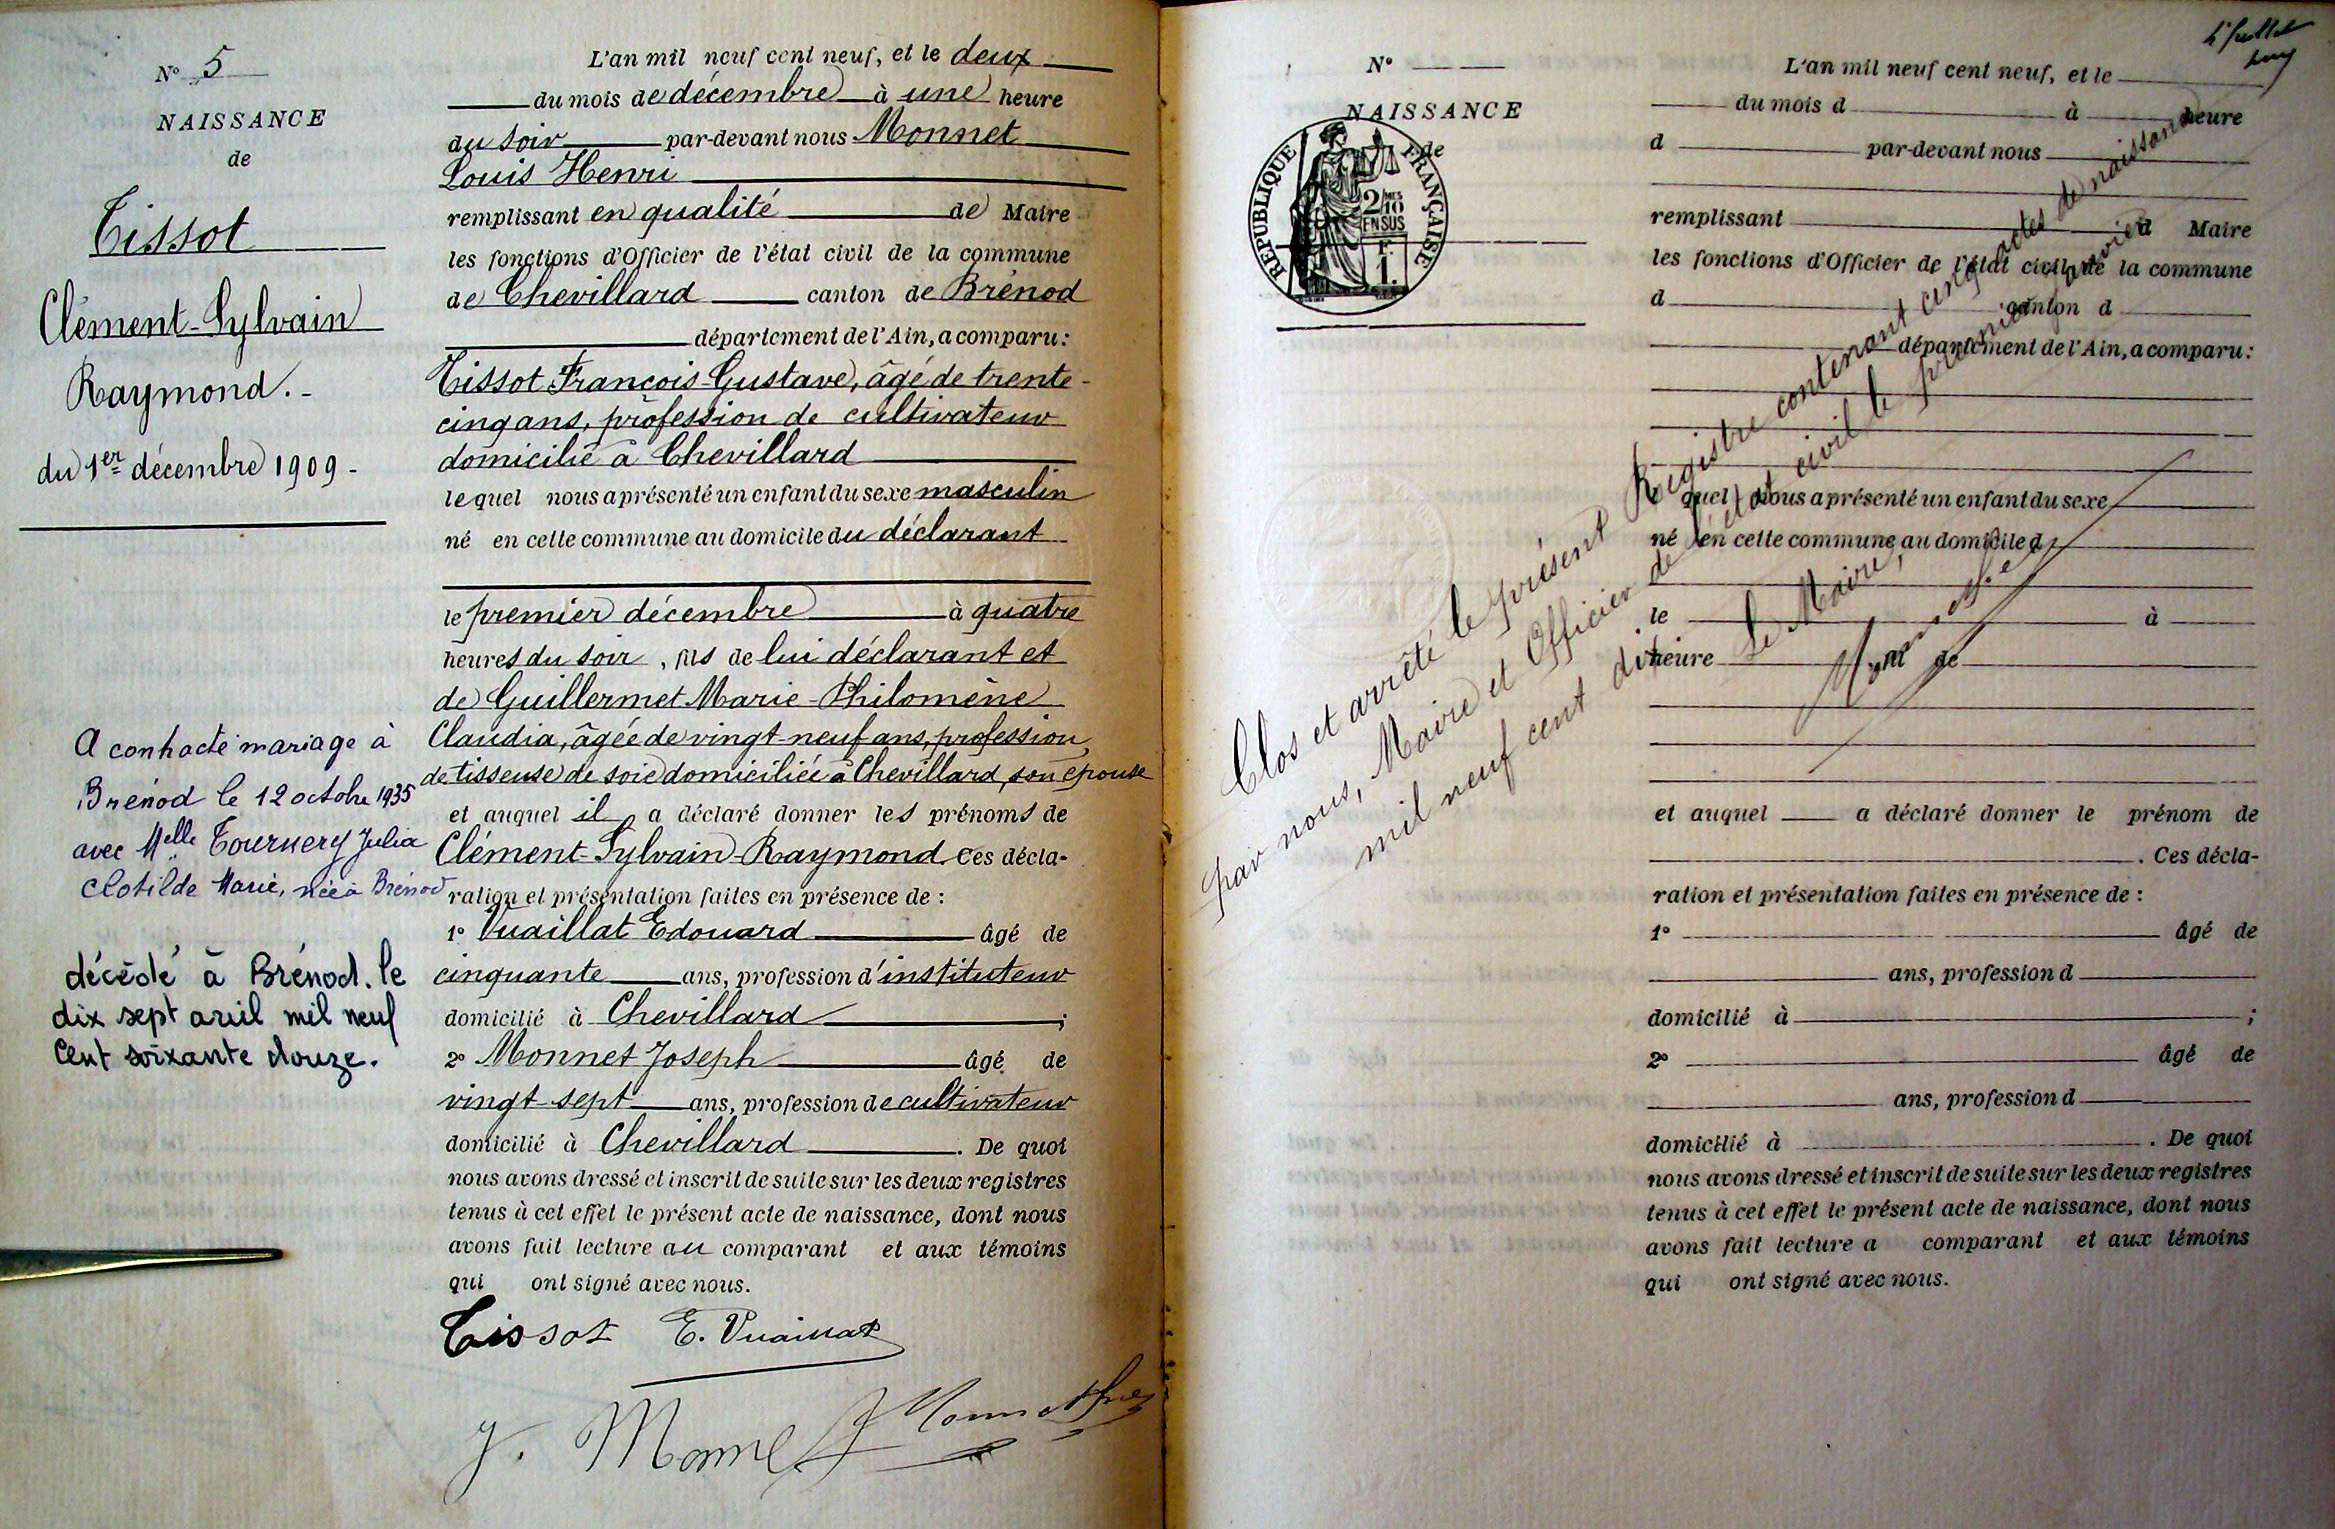 N° 5
NAISSANCE
de
Tissot
Clément-Sylvain
Raymond.-
du 1er décembre 1909-
A contracté mariage à
Brénod le 12 octobre 1935
avec Melle Tournery Julia
Clotilde Marie, née à Brénod
décédé à Brénod. le
dix sept avril mil neuf
Cent soixante douze.
L'an mil neuf cent neuf, et le deux
du mois de décembre à une heure
du soir par-devant nous Monnet
Louis Henri
remplissant en qualité de Maire
les fonctions d'Officier de l'état civil de la commune
de Chevillard canton de Brénod
département de l'Ain, a comparu:
Tissot François-Gustave, âgé de trente-
cinq ans, profession de cultivateur
domicilié à Chevillard
lequel nous a présenté un enfant du sexe masculin
né en cette commune au domicile du déclarant
le premier décembre à quatre
heures du soir, fils de lui déclarant et
de Guillermet Marie-Philomène
Claudia, âgée de vingt-neuf ans, profession
de tisseuse de soie domiciliée à Chevillard, son épouse
et auquel il a déclaré donner les prénoms de
Clément-Sylvain-Raymond. Ces décla-
ration et présentation faites en présence de :
1° Vuaillat Edouard âgé de
cinquante ans, profession d'instituteur
domicilié à Chevillard ;
2° Monnet Joseph âgé de
vingt-sept ans, profession de cultivateur
domicilié à Chevillard . De quoi
nous avons dressé et inscrit de suite sur les deux registres
tenus à cet effet le présent acte de naissance, dont nous
avons fait lecture au comparant et aux témoins
qui ont signé avec nous.
Tissot E. Vuaillat
J. Monnet Monnet
N°
NAISSANCE
de
REPUBLIQUE FRANÇAISE
2/10
EN SUS
F.
1.
L'an mil neuf cent neuf, et le
du mois d à heure
d par-devant nous
remplissant d Maire
les fonctions d'Officier de l'état civil de la commune
d canton d
département de l'Ain, a comparu:
quel nous a présenté un enfant du sexe
né en cette commune au domicile d
le à
heure de
et auquel a déclaré donner le prénom de
. Ces décla-
ration et présentation faites en présence de :
1° âgé de
ans, profession d
domicilié à ;
2° âgé de
ans, profession d
domicilié à . De quoi
nous avons dressé et inscrit de suite sur les deux registres
tenus à cet effet le présent acte de naissance, dont nous
avons fait lecture a comparant et aux témoins
qui ont signé avec nous.
Clos et arrêté le présent Registre contenant cinq actes de naissance
par nous, Maire et Officier de l'état civil le premier janvier
mil neuf cent dix
Le Maire,
Monnet